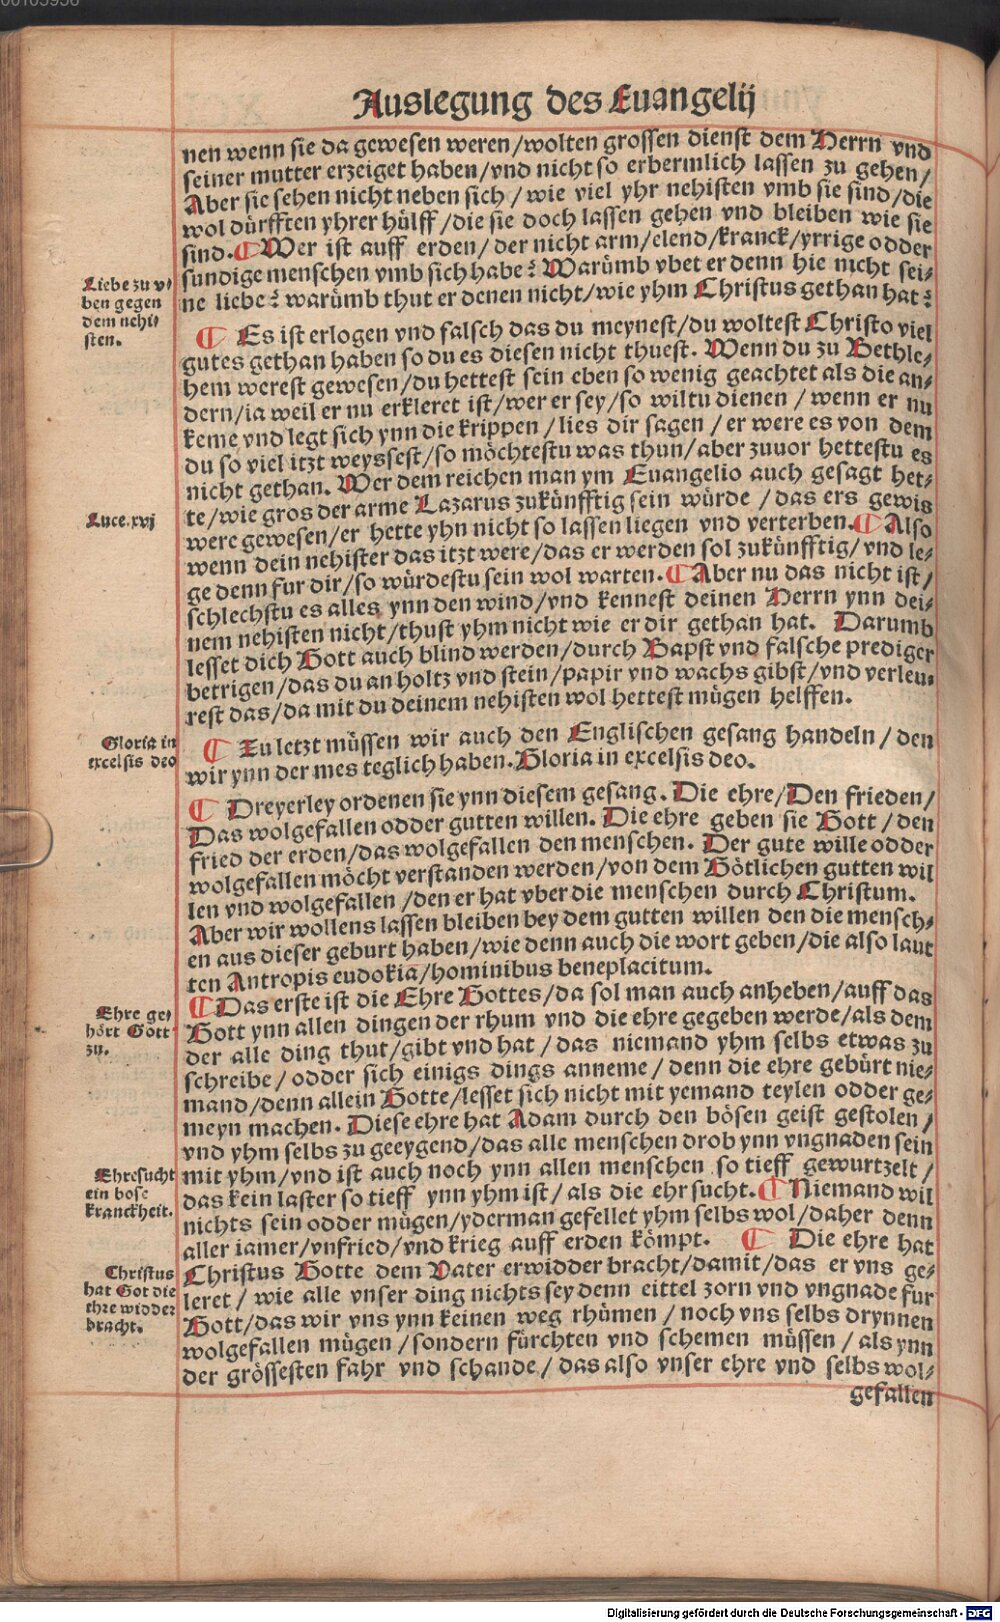 Auslegung des Euangelij
nen wenn sie da gewesen weren/wolten grossen dienst dem Herrn vnd
seiner mutter erzeiget haben/vnd nicht so erbermlich lassen zu gehen/
Aber sie sehen nicht neben sich/wie viel yhr nehisten vmb sie sind/die
wol dürfften yhrer hülff/die sie doch lassen gehen vnd bleiben wie sie
sind. ¶ Wer ist auff erden/der nicht arm/elend/kranck/yrrige odder
sundige menschen vmb sich habe? Warümb vbet er denn hie nicht sei-
ne liebe? warümb thut er denen nicht/wie yhm Christus gethan hat?
Liebe zu v-
ben gegen
dem nehi-
sten.
¶ Es ist erlogen vnd falsch das du meynest/du woltest Christo viel
gutes gethan haben so du es diesen nicht thuest. Wenn du zu Bethle-
hem werest gewesen/du hettest sein eben so wenig geachtet als die an-
dern/ia weil er nu erkleret ist/wer er sey/so wiltu dienen/wenn er nu
keme vnd legt sich ynn die krippen/lies dir sagen/er were es von dem
du so viel itzt weyssest/so möchtestu was thun/aber zuuor hettestu es
nicht gethan. Wer dem reichen man ym Euangelio auch gesagt het-
te/wie gros der arme Lazarus zukünfftig sein würde/das ers gewis
were gewesen/er hette yhn nicht so lassen liegen vnd verterben. ¶ Also
wenn dein nehister das itzt were/das er werden sol zukünfftig/vnd le-
ge denn fur dir/so würdestu sein wol warten. ¶ Aber nu das nicht ist/
schlechstu es alles ynn den wind/vnd kennest deinen Herrn ynn dei-
nem nehisten nicht/thust yhm nicht wie er dir gethan hat. Darumb
lesset dich Gott auch blind werden/durch Bapst vnd falsche prediger
betrigen/das du an holtz vnd stein/papir vnd wachs gibst/vnd verleu-
rest das/da mit du deinem nehisten wol hettest mügen helffen.
Luce.xvj
¶ Zu letzt müssen wir auch den Englischen gesang handeln/den
wir ynn der mes teglich haben. Gloria in excelsis deo.
Gloria in
excelsis deo
¶ Dreyerley ordenen sie ynn diesem gesang. Die ehre/Den frieden/
Das wolgefallen odder gutten willen. Die ehre geben sie Gott/den
fried der erden/das wolgefallen den menschen. Der gute wille odder
wolgefallen möcht verstanden werden/von dem Götlichen gutten wil
len vnd wolgefallen/den er hat vber die menschen durch Christum.
Aber wir wollens lassen bleiben bey dem gutten willen den die mensch-
en aus dieser geburt haben/wie denn auch die wort geben/die also laut
ten Antropis eudokia/hominibus beneplacitum.
¶ Das erste ist die Ehre Gottes/da sol man auch anheben/auff das
Gott ynn allen dingen der rhum vnd die ehre gegeben werde/als dem
der alle ding thut/gibt vnd hat/das niemand yhm selbs etwas zu
schreibe/odder sich einigs dings anneme/denn die ehre gebürt nie-
mand/denn allein Gotte/lesset sich nicht mit yemand teylen odder ge-
meyn machen. Diese ehre hat Adam durch den bösen geist gestolen/
vnd yhm selbs zu geeygend/das alle menschen drob ynn vngnaden sein
mit yhm/vnd ist auch noch ynn allen menschen so tieff gewurtzelt/
das kein laster so tieff ynn yhm ist/als die ehr sucht. ¶ Niemand wil
nichts sein odder mügen/yderman gefellet yhm selbs wol/daher denn
aller iamer/vnfried/vnd krieg auff erden kömpt. ¶ Die ehre hat
Christus Gotte dem Vater erwidder bracht/damit/das er vns ge-
leret/wie alle vnser ding nichts sey denn eittel zorn vnd vngnade fur
Gott/das wir vns ynn keinen weg rhümen/noch vns selbs drynnen
wolgefallen mügen/sondern fürchten vnd schemen müssen/als ynn
der grössesten fahr vnd schande/das also vnser ehre vnd selbs wol-
gefallen
Ehre ge-
hört Gott
zu.
Ehresucht
ein bose
kranckheit.
Christus
hat Got die
ehre widder
bracht.
Digitalisierung gefördert durch die Deutsche Forschungsgemeinschaft - DFG